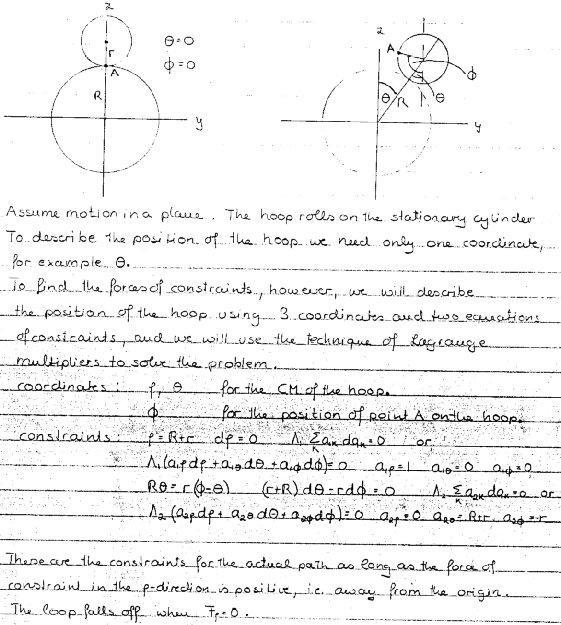 z
r
θ=0
A
φ=0
R
y
z
A
φ
θ
R
θ
y
Assume motion in a plane. The hoop rolls on the stationary cylinder
To describe the position of the hoop we need only one coordinate,
for example θ.
To find the forces of constraints, however, we will describe
the position of the hoop using 3 coordinates and two equations
of constraints, and we will use the technique of Lagrange
multipliers to solve the problem.
coordinates: ρ, θ for the CM of the hoop.
φ for the position of point A on the hoop.
constraints: ρ=R+r dρ=0 Λ₁ Σ_k a₁ₖ dqₖ=0 or
Λ₁(a₁ρdρ+a₁θdθ+a₁φdφ)=0 a₁ρ=1 a₁θ=0 a₁φ=0
Rθ=r(φ-θ) (r+R)dθ-rdφ=0 Λ₂ Σ_k a₂ₖdqₖ=0 or
Λ₂(a₂ρdρ+a₂θdθ+a₂φdφ)=0 a₂ρ=0 a₂θ=R+r a₂φ=-r
These are the constraints for the actual path as long as the force of
constraint in the ρ-direction is positive, i.e. away from the origin.
The loop falls off when Fρ=0.